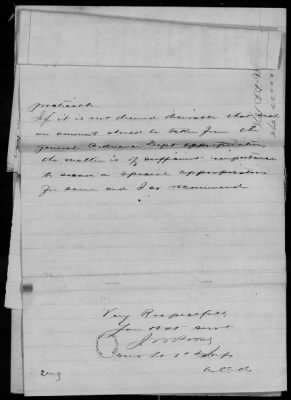 practicable.
If it is not deemed desirable that such
an amount should be taken from the
general Ordnance Dept appropriation,
the matter is of sufficient importance
to secure a special appropriation
for same and I so recommend
Very Respectfully
Your Obdt Servt